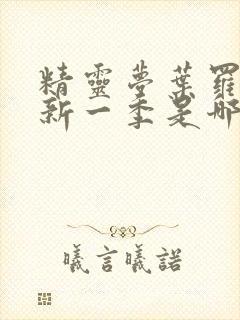 精靈夢葉羅
新一季是哪
曦言曦諾